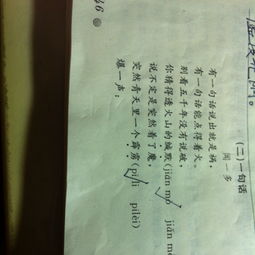 (二)一句话
闻一多
有一句话说出就是祸,
有一句话能点得着火。
别看五千年没有说破,
你猜得透火山的缄默(jiān mò jiān
说不定是突然着了魔,
突然青天里一个霹雳(pī lì pīlèi)
爆一声:
46